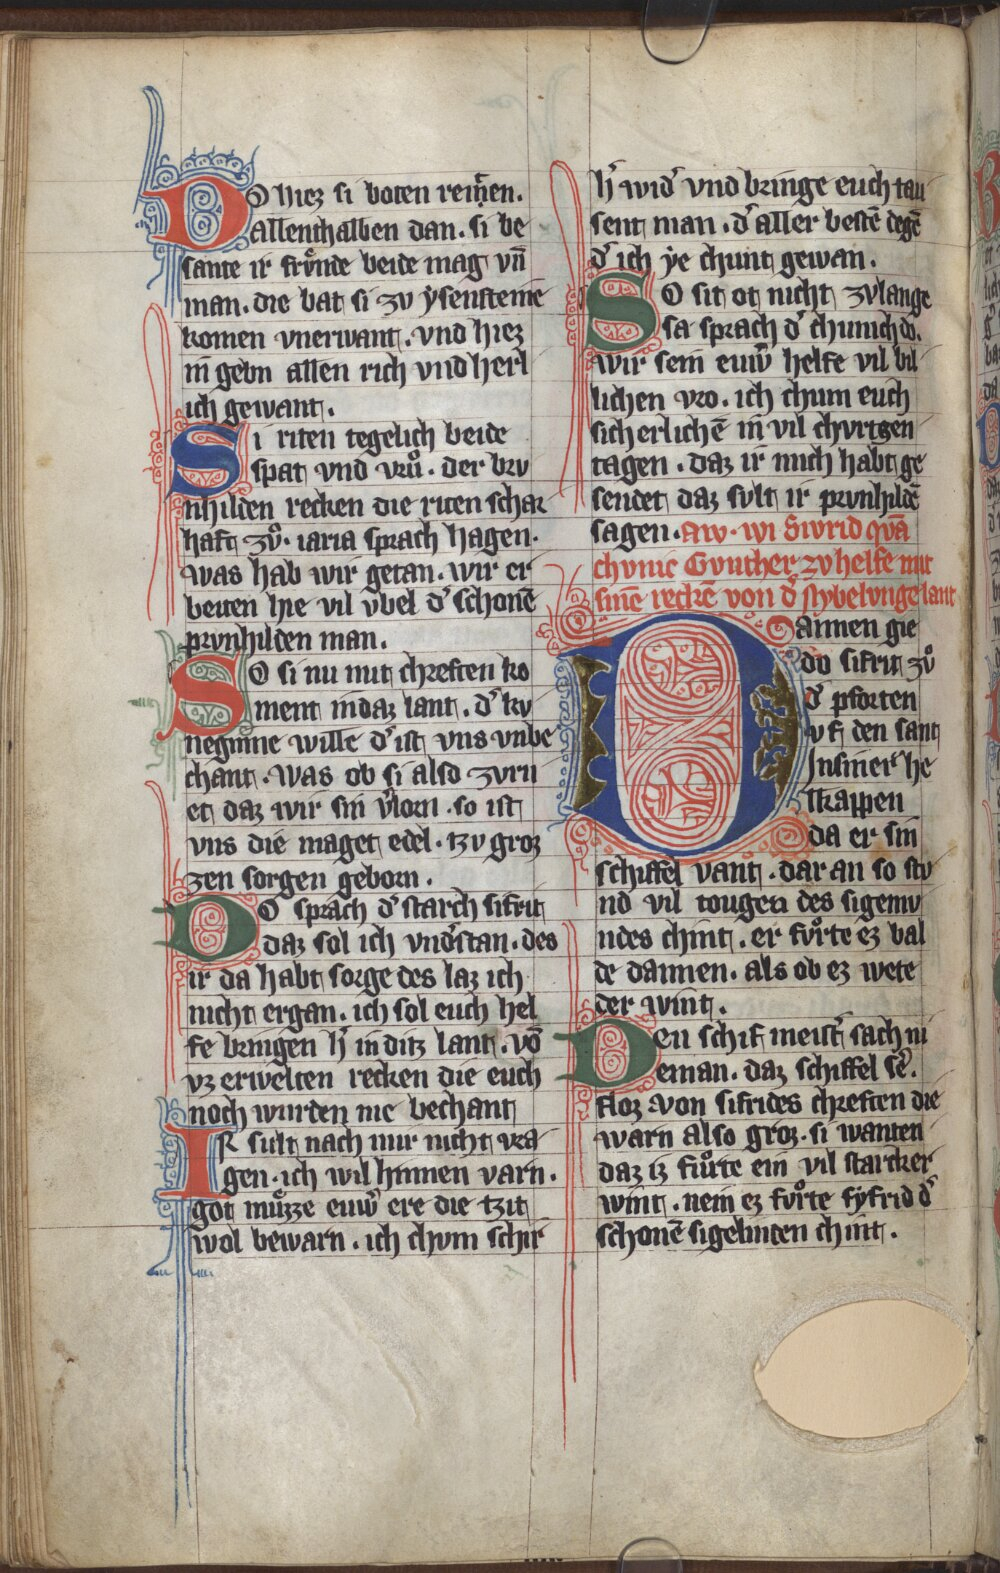 DO hiez si boten reiten.
allenthalben dan. si be
sante ir frůnde beide mag vn̄
man. die bat si zv ẏsensteine
komen vnerwant. vnd hiez
in gebn allen rich vnd herl
ich gewant.
Si riten tegelich beide
spat vnd vrů. der brv
nhilden recken die riten schar
haft zů. iaria sprach hagen.
was hab wir getan. wir er
beiten hie vil vbel d̾ schonē
prvnhilden man.
SO si nu mit chreften ko
ment in daz lant. d̾ kv
neginne wille d̾ ist vns vnbe
chant. was ob si also zvrn
et daz wir sin v̾lorn. so ist
vns die maget edel. tzv groz
zen sorgen geborn.
DO sprach d̾ starch sifrit
daz sol ich vnd̾stan. des
ir da habt sorge des laz ich
nicht ergan. ich sol euch hel
fe bringen h̾ in ditz lant. vō
vz erwelten recken die euch
noch wurden nie bechant
IR sult nach mir nicht vra
gen. ich wil hinnen varn.
got můzze euw̾ ere die tzit
wol bewarn. ich chvm schir
h̾ wid̾ vnd bringe euch tau
sent man. d̾ aller bestē degē
d̾ ich ẏe chunt gewan.
SO sit ot nicht zvlange
sa sprach d̾ chunich do.
wir sein euw̾ helfe vil bil
lichen vro. ich chum euch
sicherlichē in vil chvrtzen
tagen. daz ir mich habt ge
sendet daz svlt ir prvnhildē
sagen. aw. wi Sivrid qvā
chvnic Gvnther zv helfe mit
sinē reckē von d̾ nybelvnge lant
Dannen gie
do sifrit zů
d̾ pforten
vf den sant
Jn siner he
lkappen
da er sin
schiffel vant. dar an so stv
nd vil tougen des sigemv
ndes chint. er fůrte ez bal
de dannen. als ob ez wete
der wint.
Den schif meist̾ sach ni
eman. daz schiffel se̾.
floz von sifrides chreften die
warn also groz. si wanten
daz iz fůrte ein vil starcker
wint. nein ez fůrte sẏfrid d̾
schonē sigelinten chint.